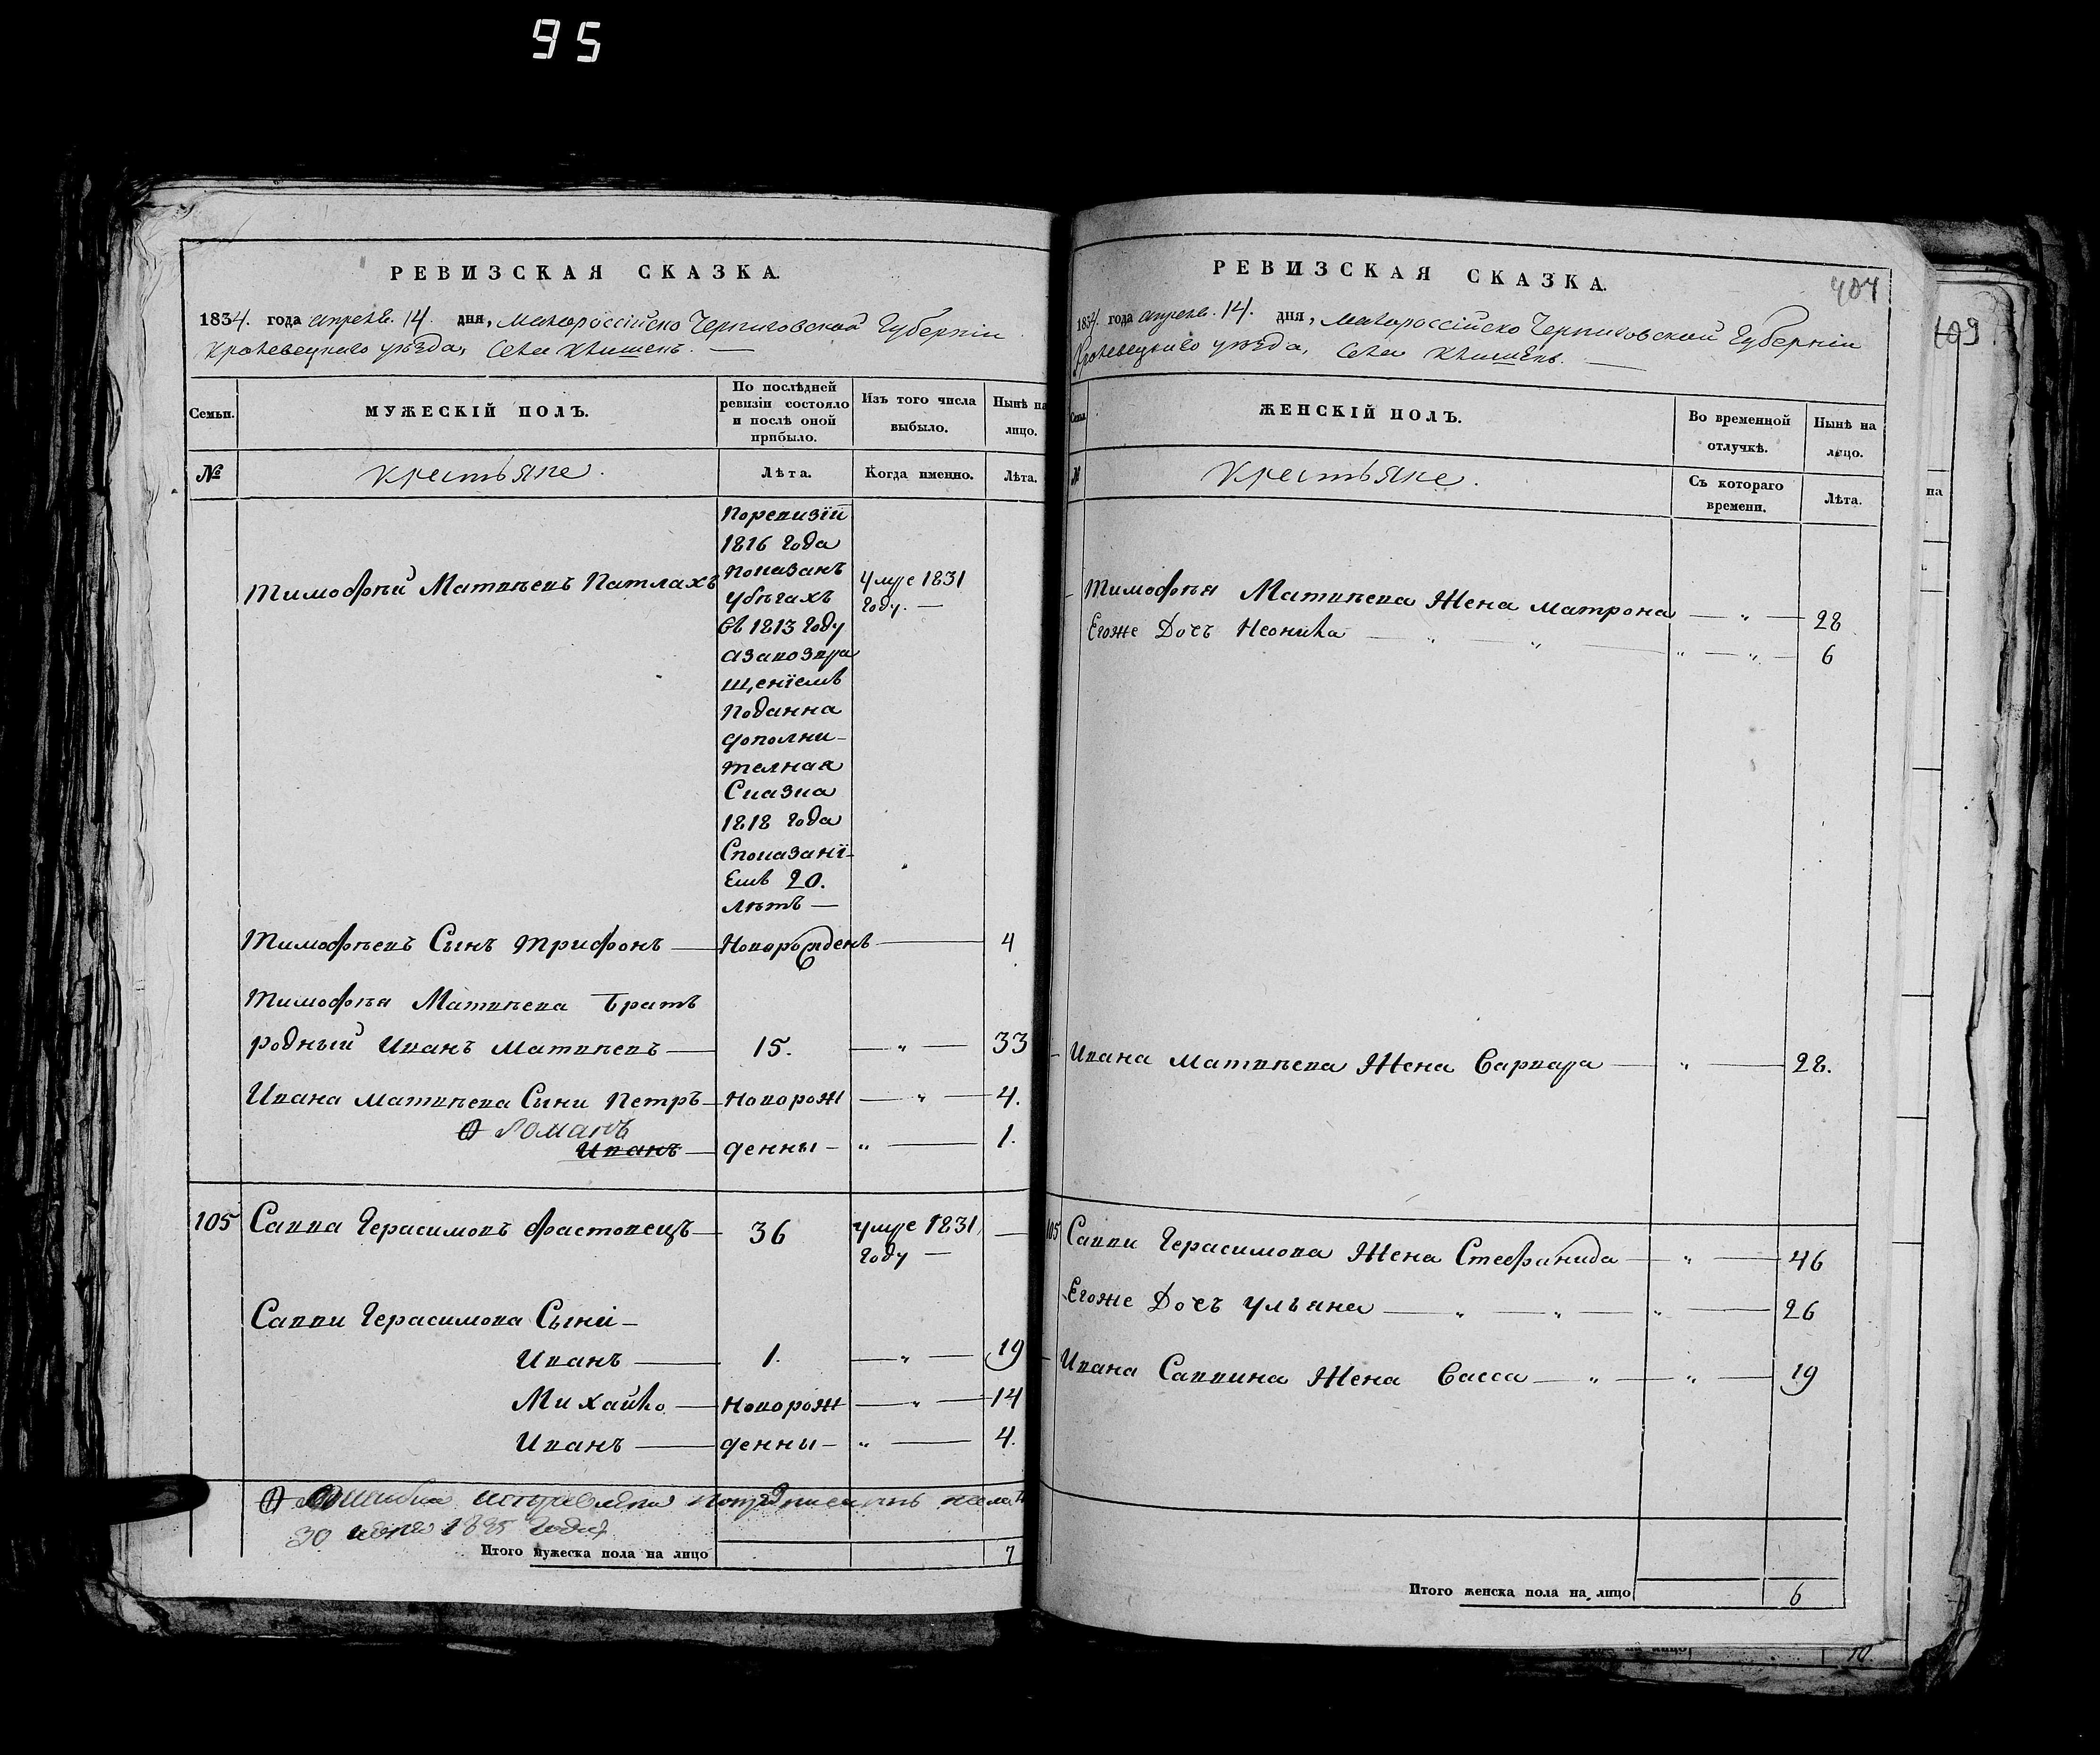 95
РЕВИЗСКАЯ СКАЗКА.
1834. года апреля. 14. дня, Малороссійско Черниговской Губерніи
Кролевецкаго уѣзда, Села Клишекъ. —
Семьи.
МУЖЕСКІЙ ПОЛЪ.
По послѣдней ревизіи состояло и послѣ оной прибыло.
Изъ того числа выбыло.
Нынѣ на лицо.
№
Крестьяне.
Лѣта.
Когда именно.
Лѣта.
Тимофѣй Матвѣевъ Патлахъ
Поревизїи
1816 года
показанъ
убѣгахъ
въ 1813 году
азавозвра
щенїемъ
Поданна
дополни-
телная
Сказка
1818 года
Споказанї-
емъ 20.
лѣтъ —
умре 1831
году. —
Тимофѣевъ Сынъ Трифонъ — Новорожденъ — 4
Тимофѣя Матвѣева Братъ
родный Иванъ Матвѣевъ — 15. — „ — 33
Ивана Матвѣева Сыни Петръ — Новорож — „ — 4.
Романъ
Иванъ — денны — „ — 1.
105 Савва Герасимовъ Фастовецъ — 36 умре 1831 —
году —
Савви Герасимова Сыни —
Иванъ — 1. — „ — 19
Михайло — Новорож — „ — 14
Иванъ — денны — „ — 4.
Ошибка исправлена
30 1835 года
Итого мужеска пола на лицо 7
РЕВИЗСКАЯ СКАЗКА.
404
1834. года апреля. 14. дня, Малороссійско Черниговской Губерніи
Кролевецкаго уѣзда, Села Клишекъ. —
Семьи.
ЖЕНСКІЙ ПОЛЪ.
Во временной отлучкѣ.
Нынѣ на лицо.
№
Крестьяне.
Съ котораго времени.
Лѣта.
Тимофѣя Матвѣева Жена Матрона — „ — 28
Егоже Дочъ Неонила — „ — „ — „ — 6
Ивана Матвѣева Жена Варвара — „ — 28.
105 Савви Герасимова Жена Стефанида — „ — 46
Егоже Дочъ Ульяна — „ — „ — „ — 26
Ивана Саввина Жена Васса — „ — „ — 19
Итого женска пола на лицо 6
109.
на
на лицо
10